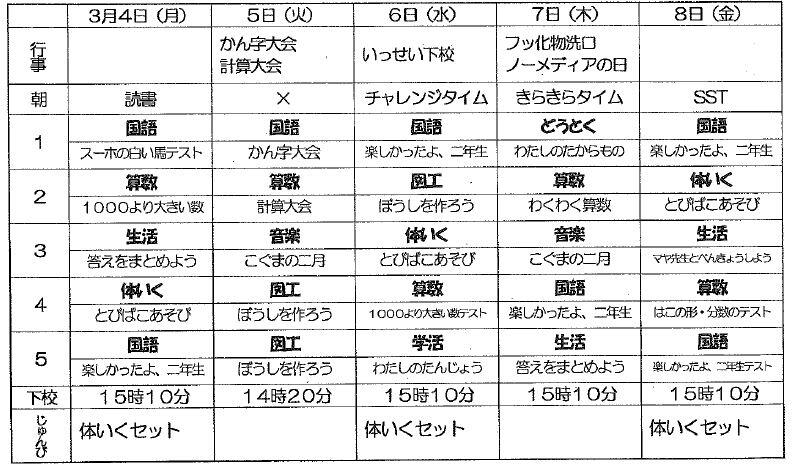 3月4日（月） 5日（火） 6日（水） 7日（木） 8日（金）
行事 かん字大会 いっせい下校 フッ化物洗口
計算大会 ノーメディアの日
朝 読書 × チャレンジタイム きらきらタイム SST
1 国語 国語 国語 どうとく 国語
スーホの白い馬テスト かん字大会 楽しかったよ、二年生 わたしのたからもの 楽しかったよ、二年生
2 算数 算数 図工 算数 体いく
1000より大きい数 計算大会 ぼうしを作ろう わくわく算数 とびばこあそび
3 生活 音楽 体いく 音楽 生活
答えをまとめよう こぐまの二月 とびばこあそび こぐまの二月 マヤ先生とべんきょうしよう
4 体いく 図工 算数 国語 算数
とびばこあそび ぼうしを作ろう 1000より大きい数テスト 楽しかったよ、二年生 はこの形・分数のテスト
5 国語 図工 学活 生活 国語
楽しかったよ、二年生 ぼうしを作ろう わたしのたんじょう 答えをまとめよう 楽しかったよ、二年生テスト
下校 15時10分 14時20分 15時10分 15時10分 15時10分
じゅんび 体いくセット 体いくセット 体いくセット